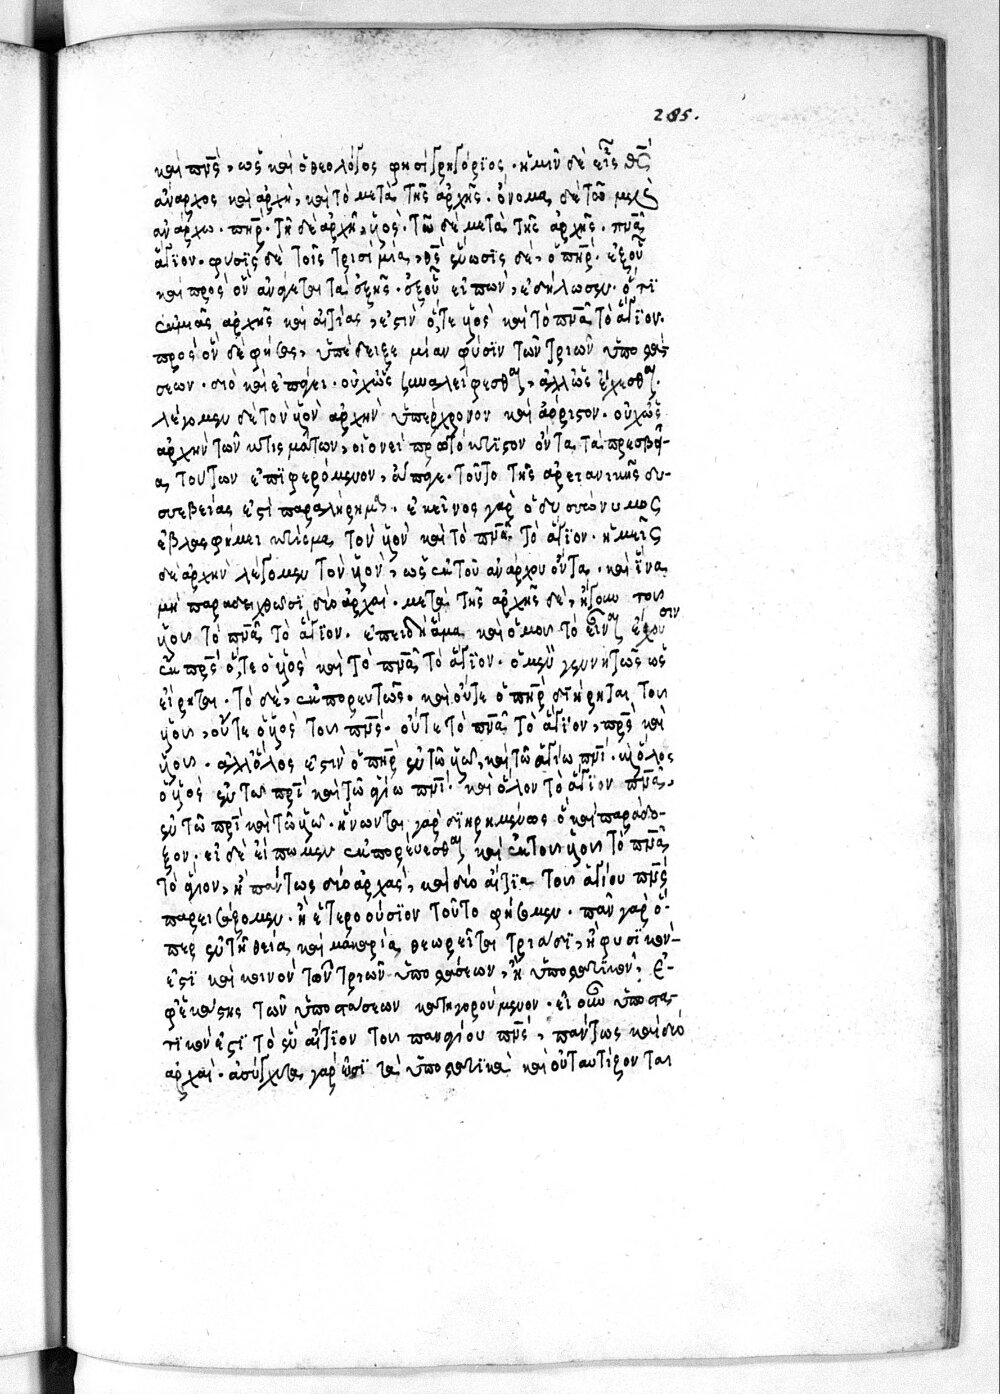 285.
καὶ πν̅ς, ὡς καὶ ὁ θεολόγος φησὶ γρηγόριος. ἡμῖν δὲ εἷς θς̅
ἄναρχος καὶ ἀρχὴ, καὶ τὸ μετὰ τῆς ἀρχῆς. ὄνομα δὲ τῶ μὲν
ἀνάρχω. πη̅ρ. τῆ δὲ ἀρχῆ, υἱός. τῶ δὲ μετὰ τῆς ἀρχῆς. πνα̅
ἅγιον. φύσις δὲ τοῖς τρισὶ μία, θς̅ ἕνωσις δὲ, ὁ πη̅ρ. ἐξ οὗ
καὶ πρὸς ὃν ἀνάγεται τὰ ἑξῆς. ἐξ οὗ εἰπὼν, ἐδήλωσεν. ὅτι
ἐκ μιᾶς ἀρχῆς καὶ αἰτίας, ἐστὶν ὅ,τε υἱὸς καὶ τὸ πνα̅ τὸ ἅγιον.
πρὸς ὃν δὲ φήσας, ὑπέδειξε μίαν φύσιν τῶν τριῶν ὑποστά
σεων. διὸ καὶ ἐπάγει. οὐχ ὡς συναλείφεσθαι, ἀλλ' ὡς ἔχεσθαι.
λέγομεν δὲ τὸν υἱὸν ἀρχὴν ὑπέρχρονον καὶ ἀόριστον. οὐχ ὡς
ἀρχὴν τῶν κτισμάτων, οἱονεὶ πρωτόκτιστον ὄντα τὰ πρεσβεῖ-
α τούτων ἐπιφερόμενον, ἄπαγε. τοῦτο τῆς ἀρειανικῆς δυ-
σσεβείας ἐστὶ παραλήρημα. ἐκεῖνος γὰρ ὁ δυσσώνυμος
ἐβλασφήμει κτίσμα τὸν υἱὸν καὶ τὸ πνα̅ τὸ ἅγιον. ἡμεῖς
δὲ ἀρχὴν λέγομεν τὸν υἱὸν, ὡς ἐκ τοῦ ἀνάρχου ὄντα. καὶ ἵνα
μὴ παραδειχθῶσι δύο ἀρχαί. μετὰ τῆς ἀρχῆς δὲ, ἤγουν τοῦ
υἱοῦ τὸ πνα̅ τὸ ἅγιον. ἐπειδὴ ἅμα καὶ ὁμοῦ τὸ εἶναι ἔχουσιν
ἐκ πρς̅ ὅ,τε ὁ υἱὸς καὶ τὸ πνα̅ τὸ ἅγιον. ὁ μὲν γεννητῶς ὡς
εἴρηται. τὸ δὲ, ἐκπορευτῶς. καὶ οὔτε ὁ πη̅ρ διήρηται τοῦ
υἱοῦ, οὔτε ὁ υἱὸς τοῦ πν̅ς. οὔτε τὸ πνα̅ τὸ ἅγιον, πρς̅ καὶ
υἱοῦ. ἀλλ' ὅλος ἐστὶν ὁ πη̅ρ ἐν τῶ υἱῶ, καὶ τῶ ἁγίω πνι̅. καὶ ὅλος
ὁ υἱὸς ἐν τῶ πρι̅ καὶ τῶ ἁγίω πνι̅. καὶ ὅλον τὸ ἅγιον πνα̅,
ἐν τῶ πρι̅ καὶ τῶ υἱῶ. ἥνωνται γὰρ διηρημένως ὃ καὶ παράδο-
ξον. εἰ δὲ εἴπωμεν ἐκπορεύεσθαι καὶ ἐκ τοῦ υἱοῦ τὸ πνα̅
τὸ ἅγιον, ἢ πάντως δύο ἀρχὰς, καὶ δύο αἴτια τοῦ ἁγίου πν̅ς
παρεισάξομεν. ἢ ἑτεροούσιον τοῦτο φήσομεν. πᾶν γὰρ ὅ-
περ ἐν τῆ θεία καὶ μακαρία θεωρεῖται τριάδι, ἢ φυσικόν-
ἐστι καὶ κοινὸν τῶν τριῶν ὑποστάσεων, ἢ ὑποστατικὸν, ἐ-
φ' ἑκάστης τῶν ὑποστάσεων κατηγορούμενον. εἰ οὖν ὑποστα-
τικόν ἐστι τὸ ἓν αἴτιον τοῦ παναγίου πν̅ς, πάντως καὶ δύο
ἀρχαί. ἀσύγχυτα γάρ εἰσι τὰ ὑποστατικὰ καὶ οὐ ταυτίζονται